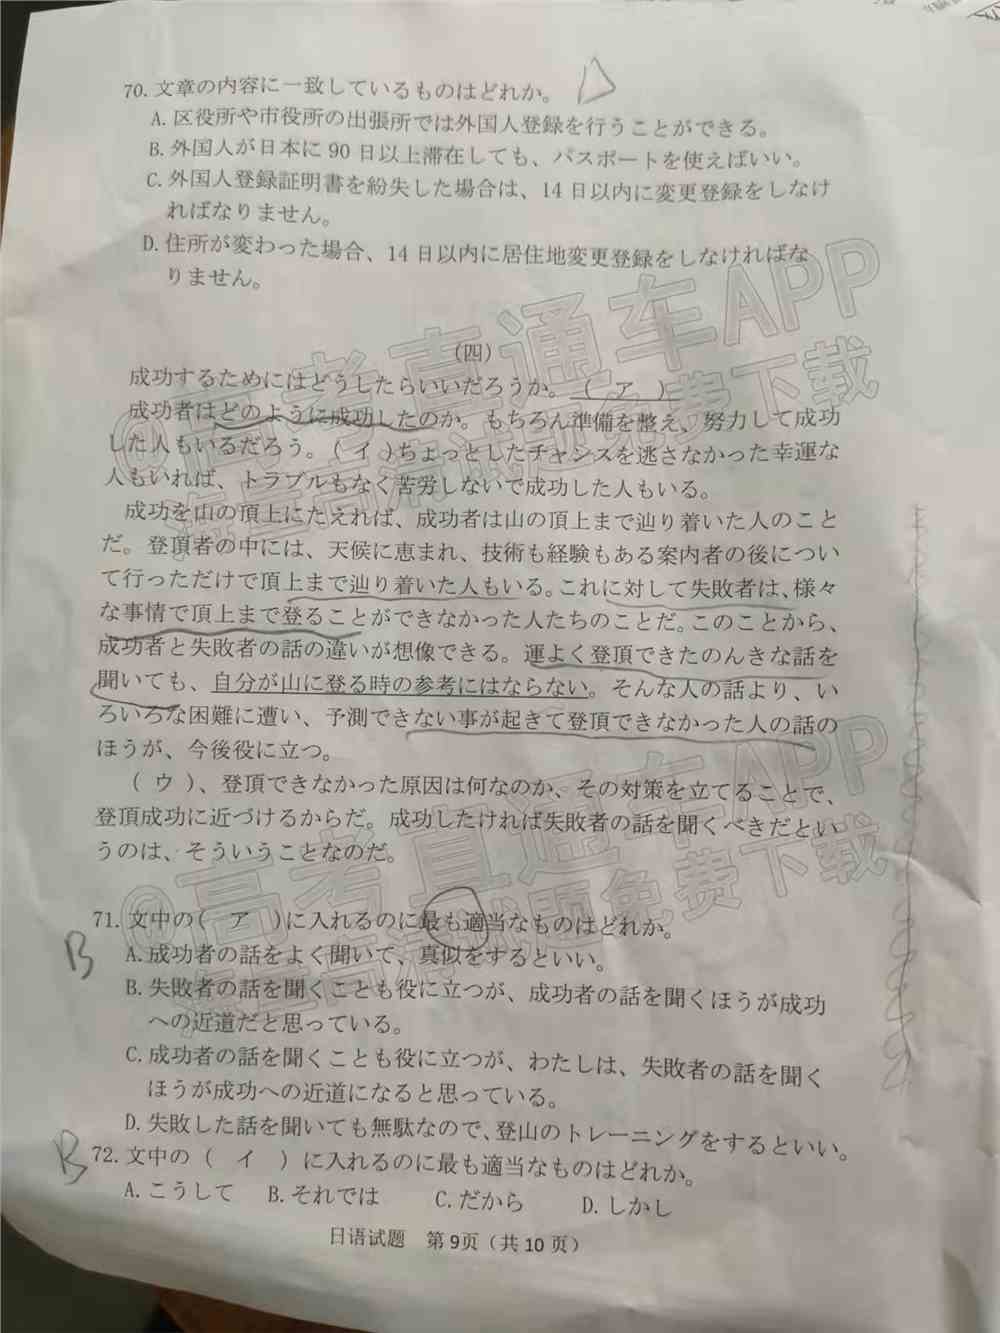 70. 文章の内容に一致しているものはどれか。
A. 区役所や市役所の出張所では外国人登録を行うことができる。
B. 外国人が日本に 90 日以上滞在しても、パスポートを使えばいい。
C. 外国人登録証明書を紛失した場合は、14 日以内に変更登録をしなけ
ればなりません。
D. 住所が変わった場合、14 日以内に居住地変更登録をしなければな
りません。
（四）
成功するためにはどうしたらいいだろうか。（ ア ）
成功者はどのように成功したのか。もちろん準備を整え、努力して成功
した人もいるだろう。（ イ ）ちょっとしたチャンスを逃さなかった幸運な
人もいれば、トラブルもなく苦労しないで成功した人もいる。
成功を山の頂上にたえれば、成功者は山の頂上まで辿り着いた人のこと
だ。登頂者の中には、天候に恵まれ、技術も経験もある案内者の後につい
て行っただけで頂上まで辿り着いた人もいる。これに対して失敗者は、様々
な事情で頂上まで登ることができなかった人たちのことだ。このことから、
成功者と失敗者の話の違いが想像できる。運よく登頂できたのんきな話を
聞いても、自分が山に登る時の参考にはならない。そんな人の話より、い
ろいろな困難に遭い、予測できない事が起きて登頂できなかった人の話の
ほうが、今後役に立つ。
（ ウ ）、登頂できなかった原因は何なのか、その対策を立てることで、
登頂成功に近づけるからだ。成功したければ失敗者の話を聞くべきだとい
うのは、そういうことなのだ。
71. 文中の（ ア ）に入れるのに最も適当なものはどれか。
B
A. 成功者の話をよく聞いて、真似をするといい。
B. 失敗者の話を聞くことも役に立つが、成功者の話を聞くほうが成功
への近道だと思っている。
C. 成功者の話を聞くことも役に立つが、わたしは、失敗者の話を聞く
ほうが成功への近道になると思っている。
D. 失敗した話を聞いても無駄なので、登山のトレーニングをするといい。
B
72. 文中の（ イ ）に入れるのに最も適当なものはどれか。
A. こうして B. それでは C. だから D. しかし
日语试题 第 9页（共 10 页）
@高考直通车APP
海量高清试题免费下载
@高考直通车APP
海量高清试题免费下载